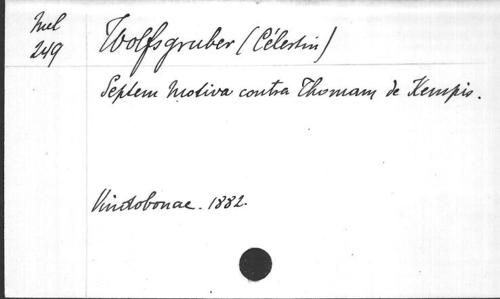 Mel
249
Wolfsgruber (Célestin)
Septem Motiva contra Thomam de Kempis.
Vindobonae. 1882.